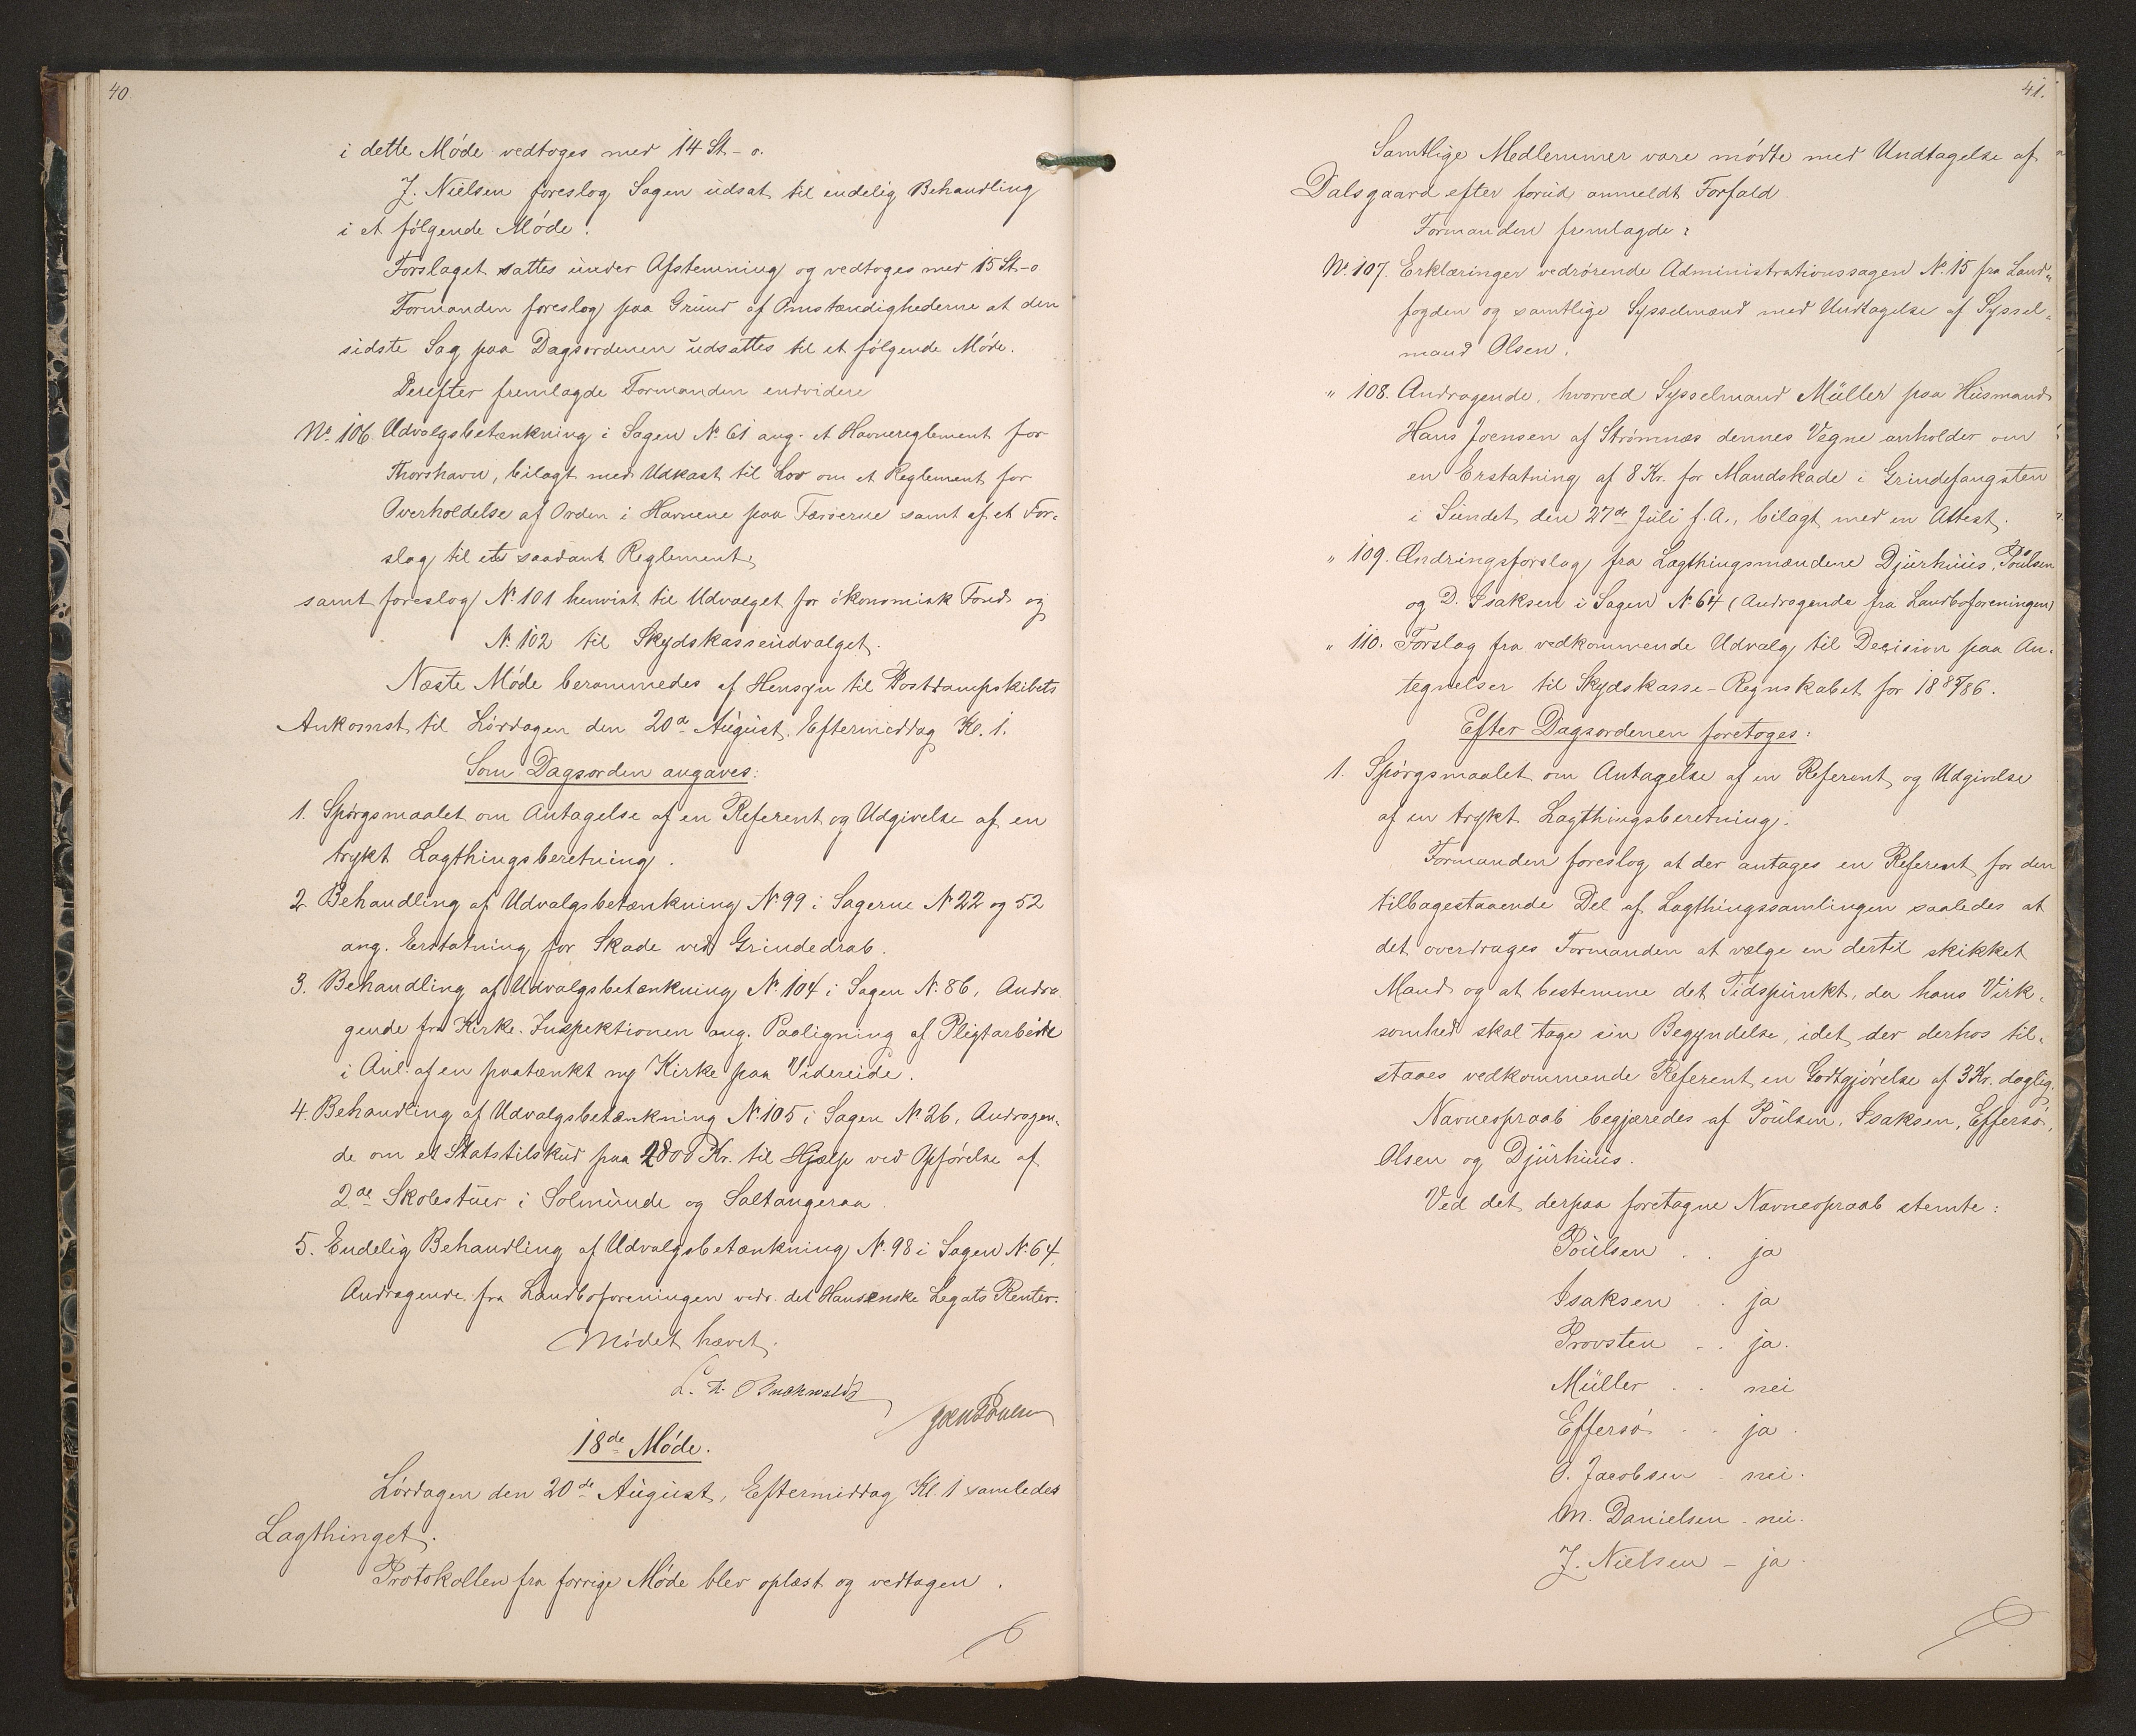 40
i dette Møde vedtoges med 14 St - o.
J. Nielsen foreslog Sagen udsat til endelig Behandling
i et følgende Møde.
Forslaget sattes under Afstemning og vedtoges med 15 St - o
Formanden foreslog paa Grund af Omstændighederne at den
sidste Sag paa Dagsordenen udsattes til et følgende Møde.
Derefter fremlagde Formanden endvidere
No. 106. Udvalgsbetænkning i Sagen No. 61 ang. et Havnereglement for
Thorshavn, bilagt med Udkast til Lov om et Reglement for
Overholdelse af Orden i Havnene paa Færøerne samt af et For-
slag til et saadant Reglement,
samt foreslog No. 101 henvist til Udvalget for økonomisk Fond og
No. 102 til Skydskasseudvalget.
Næste Møde berammedes af Hensyn til Postdampskibets
Ankomst til Lørdagen den 20de August, Eftermiddag Kl. 1.
Som Dagsorden angaves:
1. Spørgsmaalet om Antagelse af en Referent og Udgivelse af en
trykt Lagthingsberetning.
2. Behandling af Udvalgsbetænkning No 99 i Sagerne No 22 og 52
ang. Erstatning for Skade ved Grindedrab.
3. Behandling af Udvalgsbetænkning No. 104 i Sagen No. 86, Andra-
gende fra Kirke-Inspektionen ang. Paaligning af Pligtarbeide
i Anl. af en paatænkt ny Kirke paa Videreide.
4. Behandling af Udvalgsbetænkning No. 105 i Sagen No. 26, Andragen-
de om et Statstilskud paa 2800 Kr. til Hjælp ved Opførelse af
2de Skolestuer i Solmunde og Saltangeraa.
5. Endelig Behandling af Udvalgsbetænkning No. 98 i Sagen No. 64,
Andragende fra Landboforeningen vedr. det Hansenske Legats Renter.
Mødet hævet.
L. Buchwaldt
Joen Poulsen
18de Møde.
Lørdagen den 20de August, Eftermiddag Kl. 1 samledes
Lagthinget.
Protokollen fra forrige Møde blev oplæst og vedtagen.
41.
Samtlige Medlemmer vare mødte med Undtagelse af
Dalsgaard efter forud anmeldt Forfald.
Formanden fremlagde:
No. 107. Erklæringer vedrørende Administrationssagen No. 15 fra Land-
fogden og samtlige Sysselmænd med Undtagelse af Syssel-
mand Olsen.
" 108. Andragende, hvorved Sysselmand Müller paa Husmand
Hans Joensen af Strømnæs dennes Vegne anholder om
en Erstatning af 8 Kr. for Mandskade i Grindefangsten
i Sundet den 27de Juli f. A., bilagt med en Attest.
" 109. Ændringsforslag fra Lagthingsmændene Djurhuus, Poulsen
og D. Isaksen i Sagen No. 64 (Andragende fra Landboforeningen)
" 110. Forslag fra vedkommende Udvalg til Decision paa An-
tegnelser til Skydskasse-Regnskabet for 1885/86.
Efter Dagsordenen foretoges:
1. Spørgsmaalet om Antagelse af en Referent og Udgivelse
af en trykt Lagthingsberetning.
Formanden foreslog at der antages en Referent for den
tilbagestaaende Del af Lagthingssamlingen saaledes at
det overdrages Formanden at vælge en dertil skikket
Mand og at bestemme det Tidspunkt, da hans Virk-
somhed skal tage sin Begyndelse, idet der derhos til-
staaes vedkommende Referent en Godtgjørelse af 3 Kr. daglig.
Navneopraab begjæredes af Poulsen, Isaksen, Effersø,
Olsen og Djurhuus.
Ved det derpaa foretagne Navneopraab stemte:
Poulsen . . ja
Isaksen . . ja
Provsten . . ja.
Müller . . nei
Effersø . . ja.
O. Jacobsen - nei.
M. Danielsen - nei.
J. Nielsen - ja.